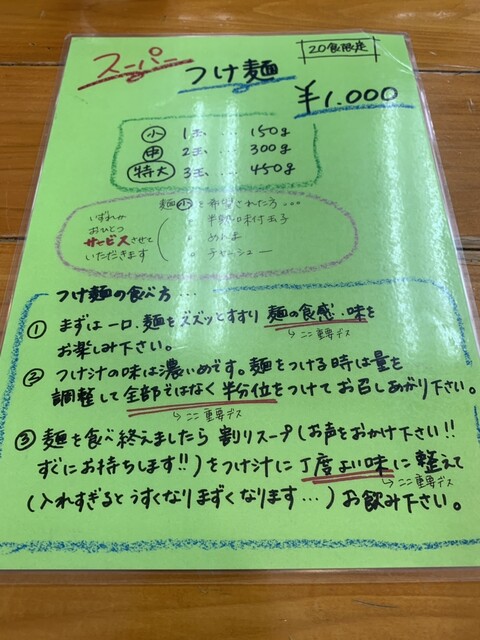 20食限定
スーパー
つけ麺
¥1.000
小 1玉 ... 150g
中 2玉 ... 300g
特大 3玉 ... 450g
麺小を希望された方...
いずれか
おひとつ
サービスさせて
いただきます
。半熟味付玉子
。めんま
。チャーシュー
つけ麺の食べ方...
① まずは一口、麺をズズッとすすり 麺の食感・味を
↳ここ重要デス
お楽しみ下さい。
② つけ汁の味は濃いめです。麺をつける時は量を
調整して全部ではなく半分位をつけてお召しあがり下さい。
↳ここ重要デス
③ 麺を食べ終えましたら 割りスープ(お声をおかけ下さい!!
すぐにお持ちします!!)をつけ汁に丁度よい味に整えて
↳ここ重要デス
(入れすぎるとうすくなりまずくなります...)お飲み下さい。